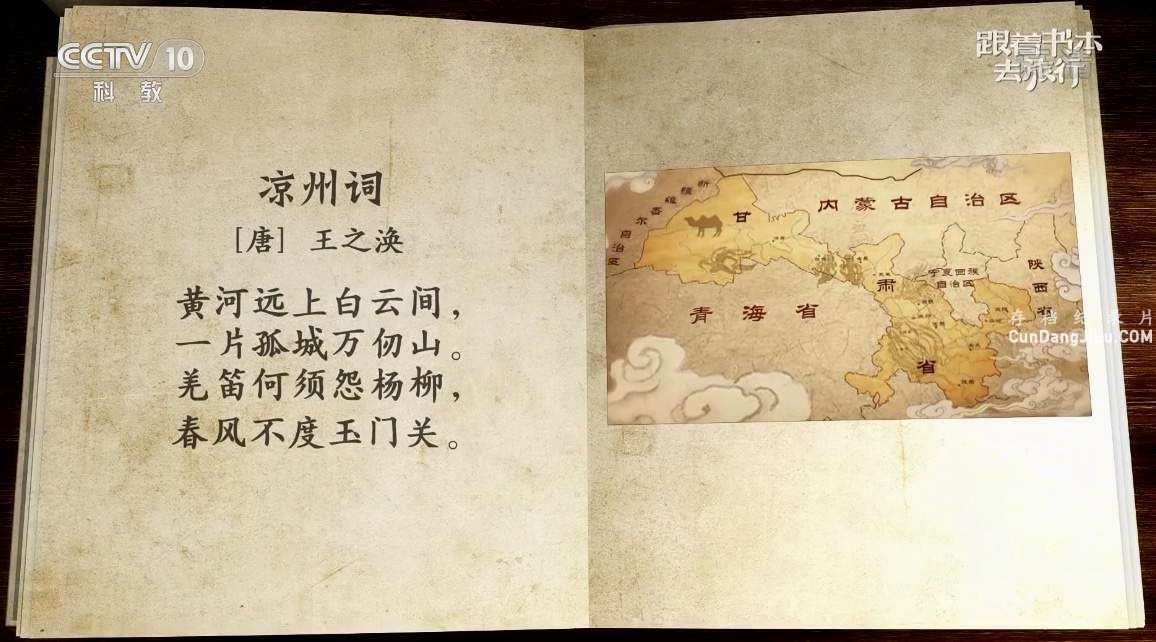 CCTV 10
科教
跟着书本
去旅行
凉州词
[唐] 王之涣
黄河远上白云间，
一片孤城万仞山。
羌笛何须怨杨柳，
春风不度玉门关。
新疆维吾尔自治区
甘
肃
省
内蒙古自治区
宁夏回族
自治区
陕西省
青海省
存档纪录片
CunDangJiLu.COM